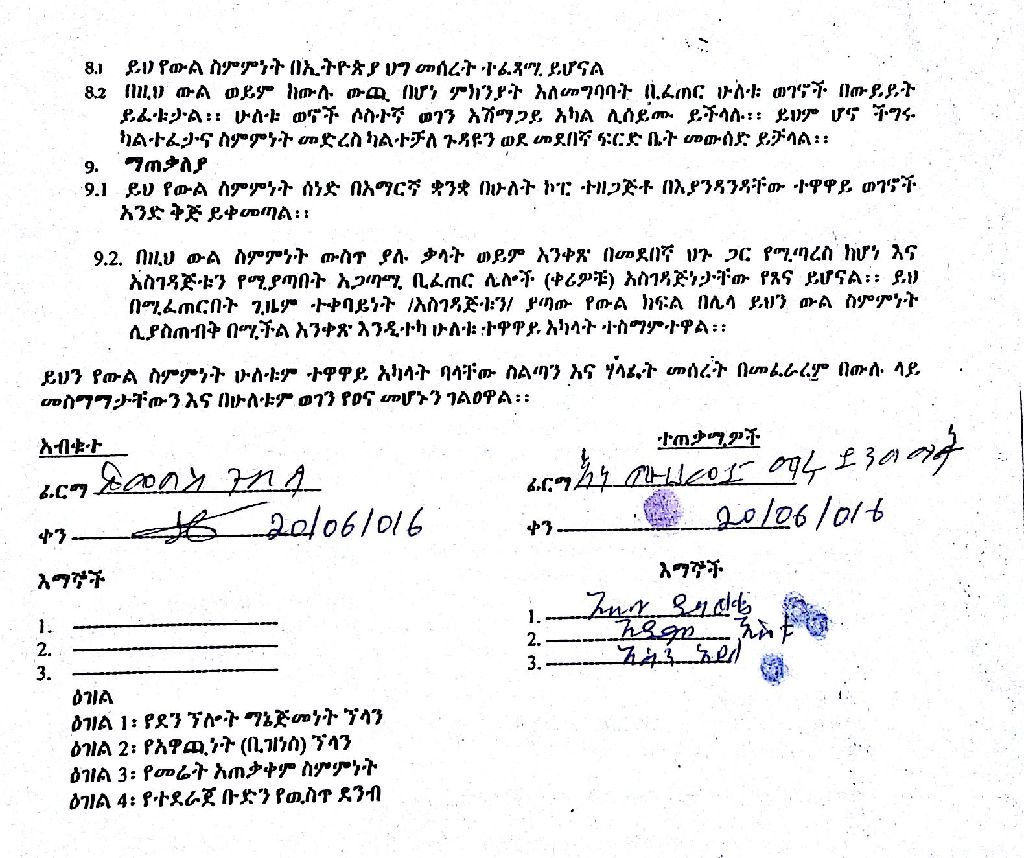 8.1 ይህ የውል ስምምነት በኢትዮጵያ ህግ መሰረት ተፈጻሚ ይሆናል
8.2 በዚህ ውል ወይም ከውሉ ውጪ በሆነ ምክንያት አለመግባባት ቢፈጠር ሁለቱ ወገኖች በውይይት
ይፈቱታል፡፡ ሁለቱ ወኖች ሶስተኛ ወገን አሽማጋይ አካል ሊሰይሙ ይችላሉ፡፡ ይህም ሆኖ ችግሩ
ካልተፈታና ስምምነት መድረስ ካልተቻለ ጉዳዩን ወደ መደበኛ ፍርድ ቤት መውሰድ ይቻላል፡፡
9. ማጠቃለያ
9.1 ይህ የውል ስምምነት ሰነድ በአማርኛ ቋንቋ በሁለት ኮፒ ተዘጋጅቶ በእያንዳንዳቸው ተዋዋይ ወገኖች
አንድ ቅጅ ይቀመጣል፡፡
9.2. በዚህ ውል ስምምነት ውስጥ ያሉ ቃላት ወይም አንቀጽ በመደበኛ ህጉ ጋር የሚጣረስ ከሆነ እና
አስገዳጅቱን የሚያጣበት አጋጣሚ ቢፈጠር ሌሎች (ቀሪዎቹ) አስገዳጅነታቸው የጸና ይሆናል፡፡ ይህ
በሚፈጠርበት ጊዜም ተቀባይነት /አስገዳጅቱን/ ያጣው የውል ክፍል በሌላ ይህን ውል ስምምነት
ሊያስጠብቅ በሚችል አንቀጽ እንዲተካ ሁለቱ ተዋዋይ አካላት ተስማምተዋል፡፡
ይህን የውል ስምምነት ሁለቱም ተዋዋይ አካላት ባላቸው ስልጣን እና ሃላፊት መሰረት በመፈራረም በውሉ ላይ
መስማማታቸውን እና በሁለቱም ወገን የፀና መሆኑን ገልፀዋል፡፡
አብቁተ
ፊርማ
ቀን 20/06/016
እማኞች
1.
2.
3.
ተጠቃሚዎች
ፊርማ
ቀን 20/06/016
እማኞች
1.
2.
3.
ዕዝል
ዕዝል 1፡ የደን ኘሎት ማኔጅመነት ኘላን
ዕዝል 2፡ የአዋጪነት (ቢዝነስ) ኘላን
ዕዝል 3፡ የመሬት አጠቃቀም ስምምነት
ዕዝል 4፡ የተደራጀ ቡድን የዉስጥ ደንብ